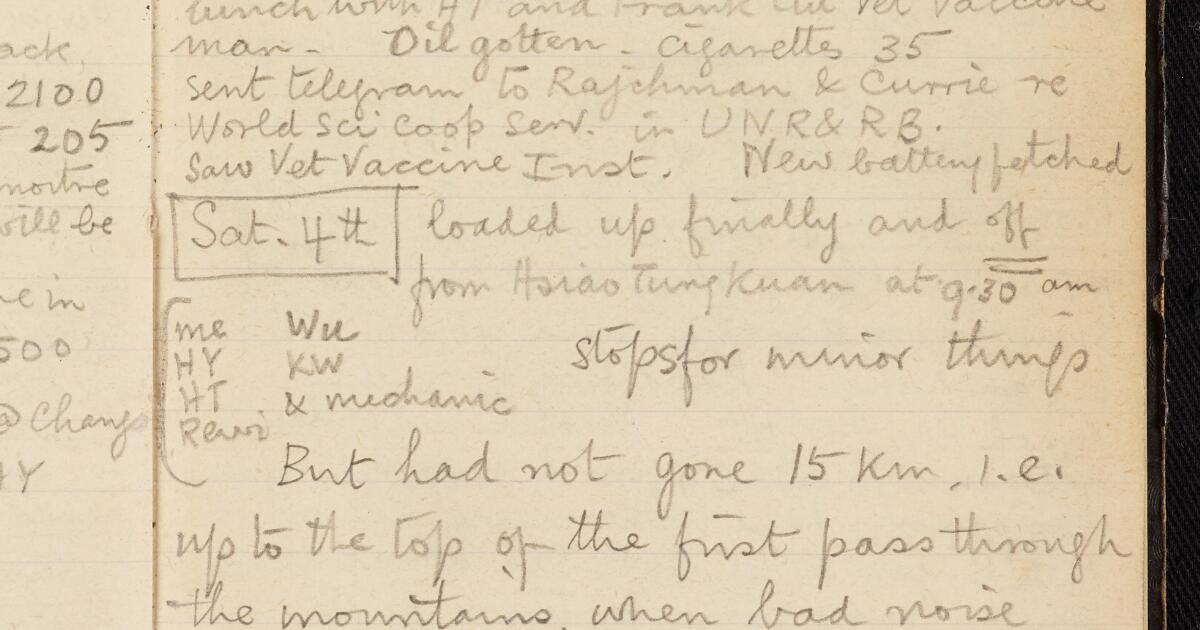 ack,
2100
205
nostre
will be
in
500
@ Changs
HY
lunch with HT and Frank
Vet Vaccine
man - Oil gotten - Cigarettes 35
sent telegram to Rajchman & Currie re
World Sci Coop Serv. in UNR&RB.
Saw Vet Vaccine Inst. New battery fetched
Sat. 4th loaded up finally and off
from Hsiao Tung Kuan at 9.30 am
me Wu
HY KW stops for minor things
HT & mechanic
Rewi
But had not gone 15 Km, i.e.
up to the top of the first pass through
the mountains, when bad noise